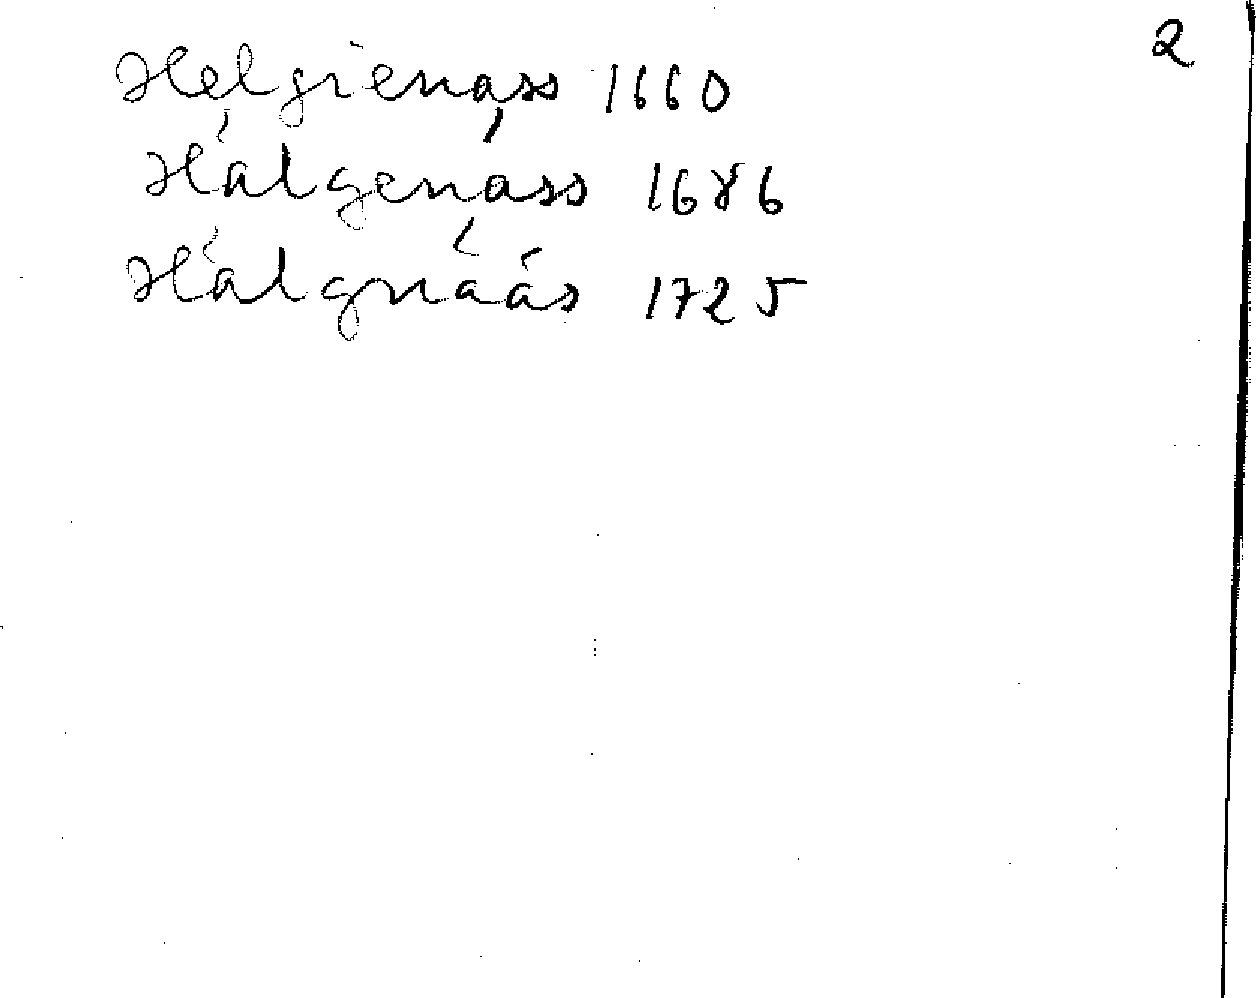 2
Helgienass 1660
Hálgenáss 1686
Hálgnáás 1725